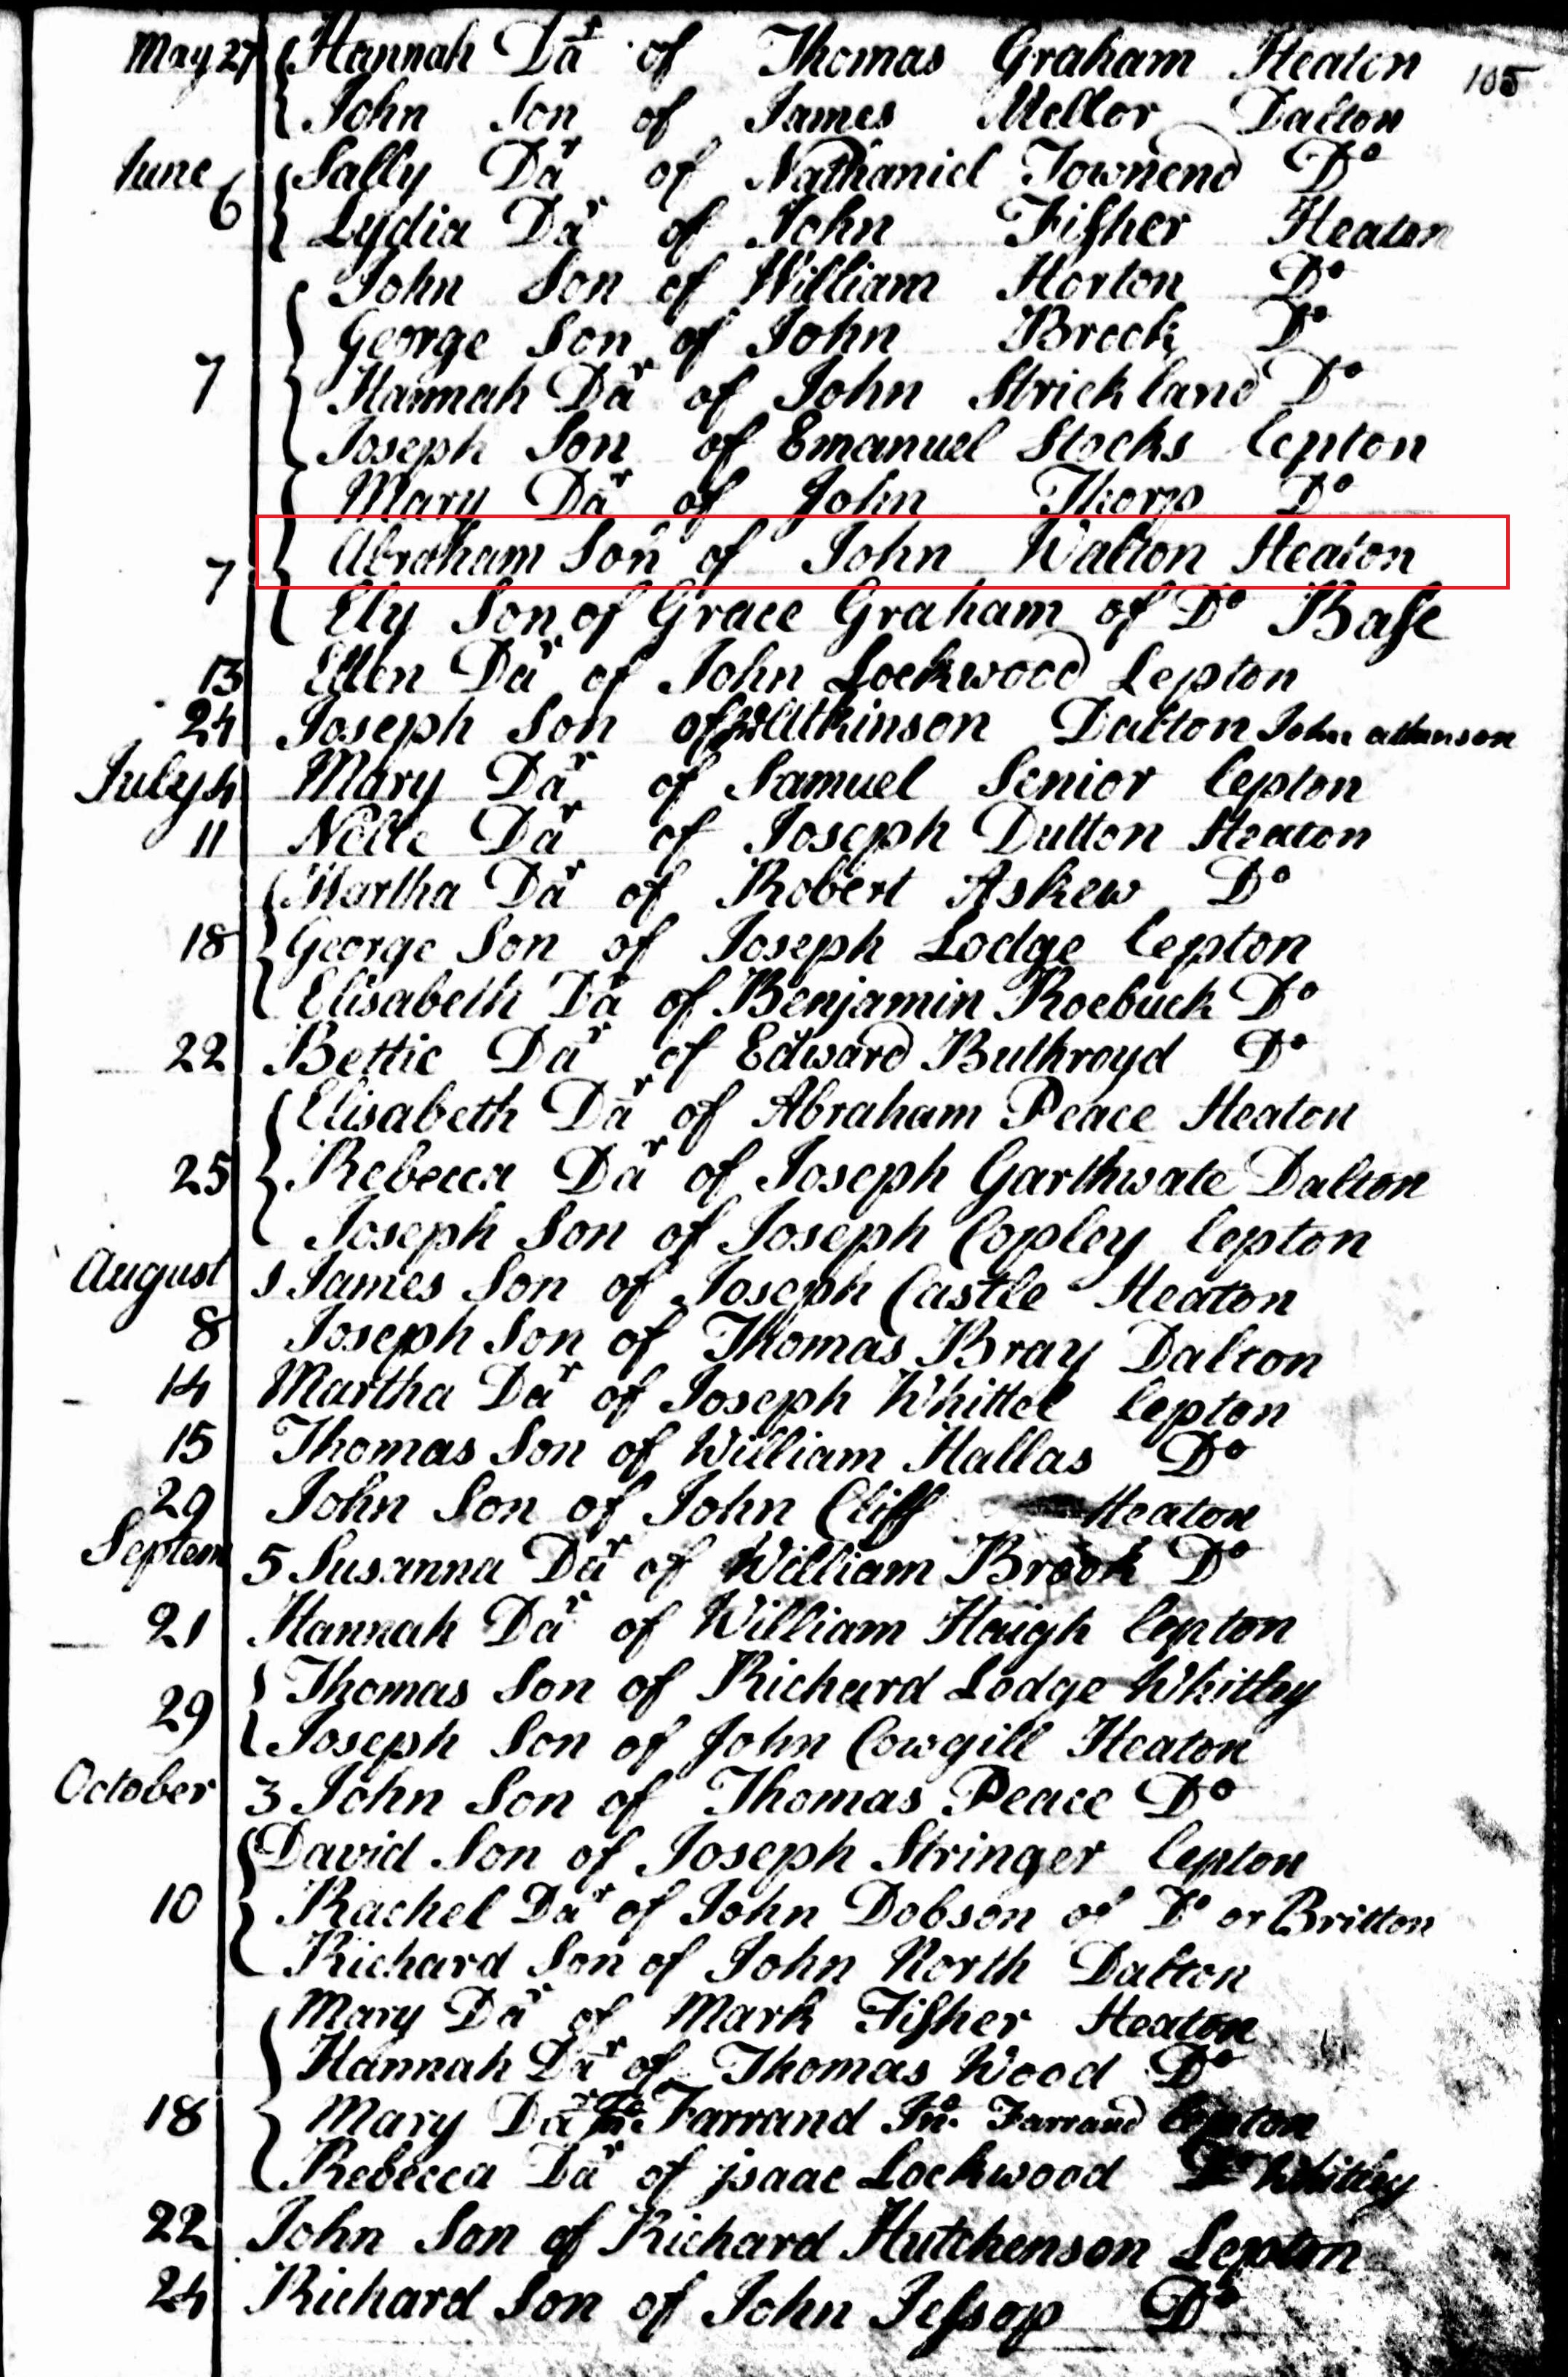 105
May 27 Hannah Dar of Thomas Graham Heaton
John Son of James Mellor Dalton
June 6 Sally Dar of Nathaniel Townend Do
Lydia Dar of John Fisher Heaton
John Son of William Horton Do
George Son of John Brook Do
7 Hannah Dar of John Strickland Do
Joseph Son of Emanuel Stocks Lepton
Mary Dar of John Thorp Do
7 Abraham Son of John Walton Heaton
Ely Son of Grace Graham of Do Base
13 Ellen Dar of John Lockwood Lepton
24 Joseph Son of Atkinson Dalton John Atkinson
July 4 Mary Dar of Samuel Senior Lepton
11 Nelle Dar of Joseph Dutton Heaton
Martha Dar of Robert Askew Do
18 George Son of Joseph Lodge Lepton
Elisabeth Dar of Benjamin Roebuck Do
22 Bettie Dar of Edward Buthroyd Do
Elisabeth Dar of Abraham Peace Heaton
25 Rebecca Dar of Joseph Garthwate Dalton
Joseph Son of Joseph Copley Lepton
August 1 James Son of Joseph Castle Heaton
8 Joseph Son of Thomas Bray Dalton
14 Martha Dar of Joseph Whittel Lepton
15 Thomas Son of William Hallas Do
29 John Son of John Cliff Heaton
Septem 5 Susanna Dar of William Brook Do
21 Hannah Dar of William Haigh Lepton
29 Thomas Son of Richard Lodge Whitley
Joseph Son of John Cowgill Heaton
October 3 John Son of Thomas Peace Do
David Son of Joseph Stringer Lepton
10 Rachel Dar of John Dobson of Do or Britton
Richard Son of John North Dalton
Mary Dar of Mark Fisher Heaton
Hannah Dar of Thomas Wood Do
18 Mary Dar Farrand Jno. Farrand Lepton
Rebecca Dar of jsaac Lockwood Whitley
22 John Son of Richard Hutchenson Lepton
24 Richard Son of John Jessop Do